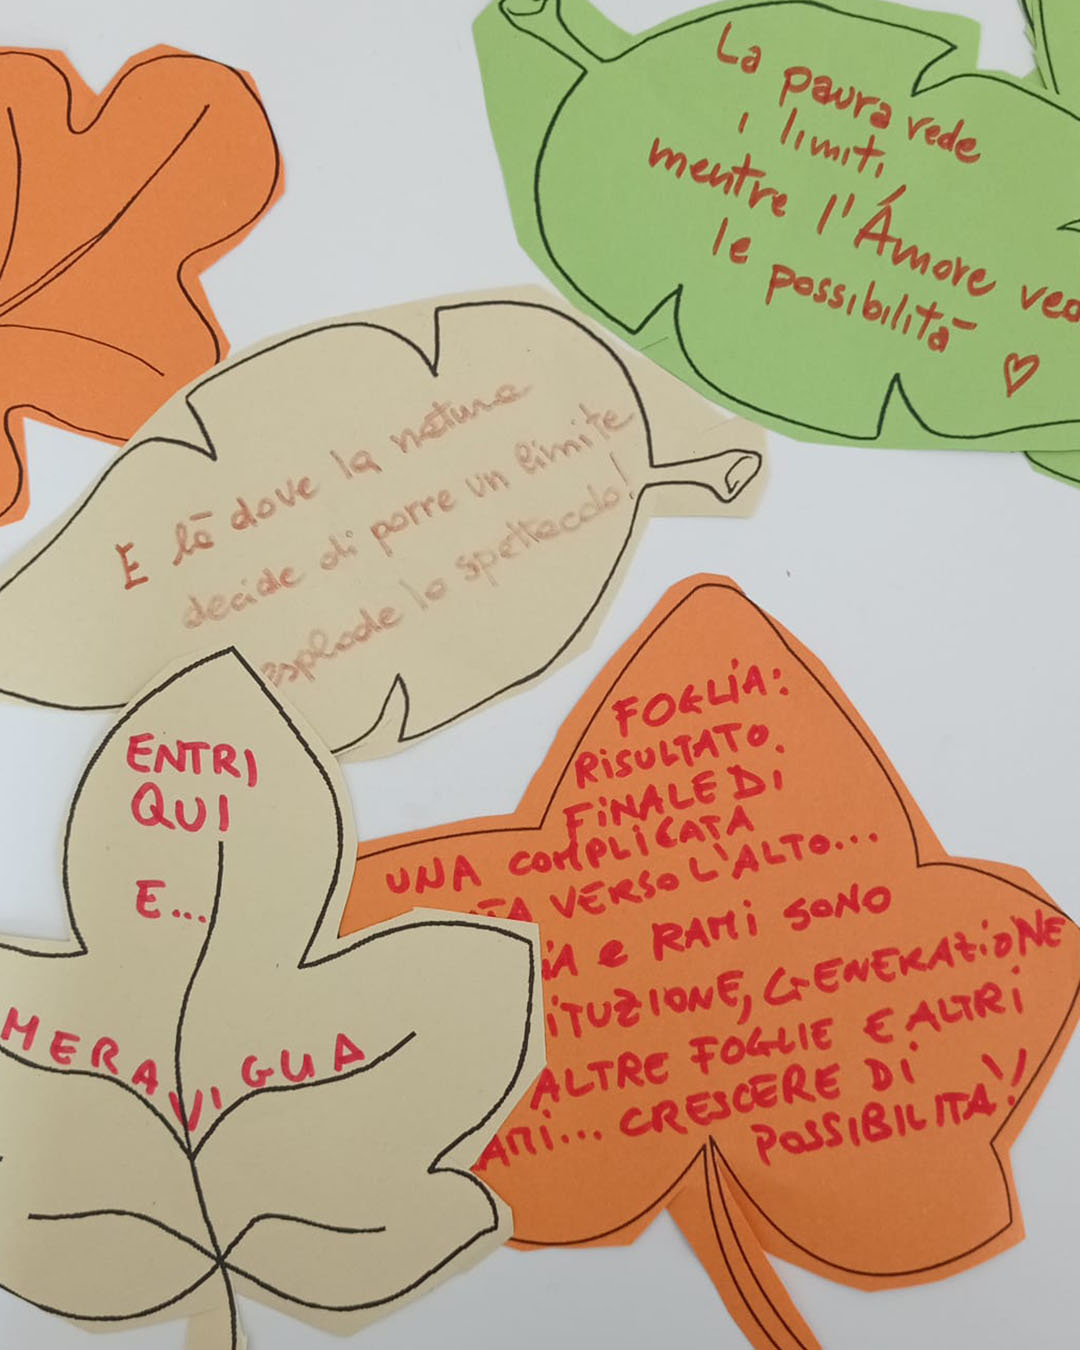 La paura vede
i limiti,
mentre l'Ámore ved
le possibilità
E là dove la natura
decide di porre un limite
esplode lo spettacolo!
ENTRI
QUI
E...
MERAVIGLIA
FOGLIA:
RISULTATO
FINALE DI
UNA COMPLICATA
VERSO L'ALTO...
E RAMI SONO
ITUZIONE, GENERAZIONE
ALTRE FOGLIE E ALTRI
AMI... CRESCERE DI
POSSIBILITÀ!